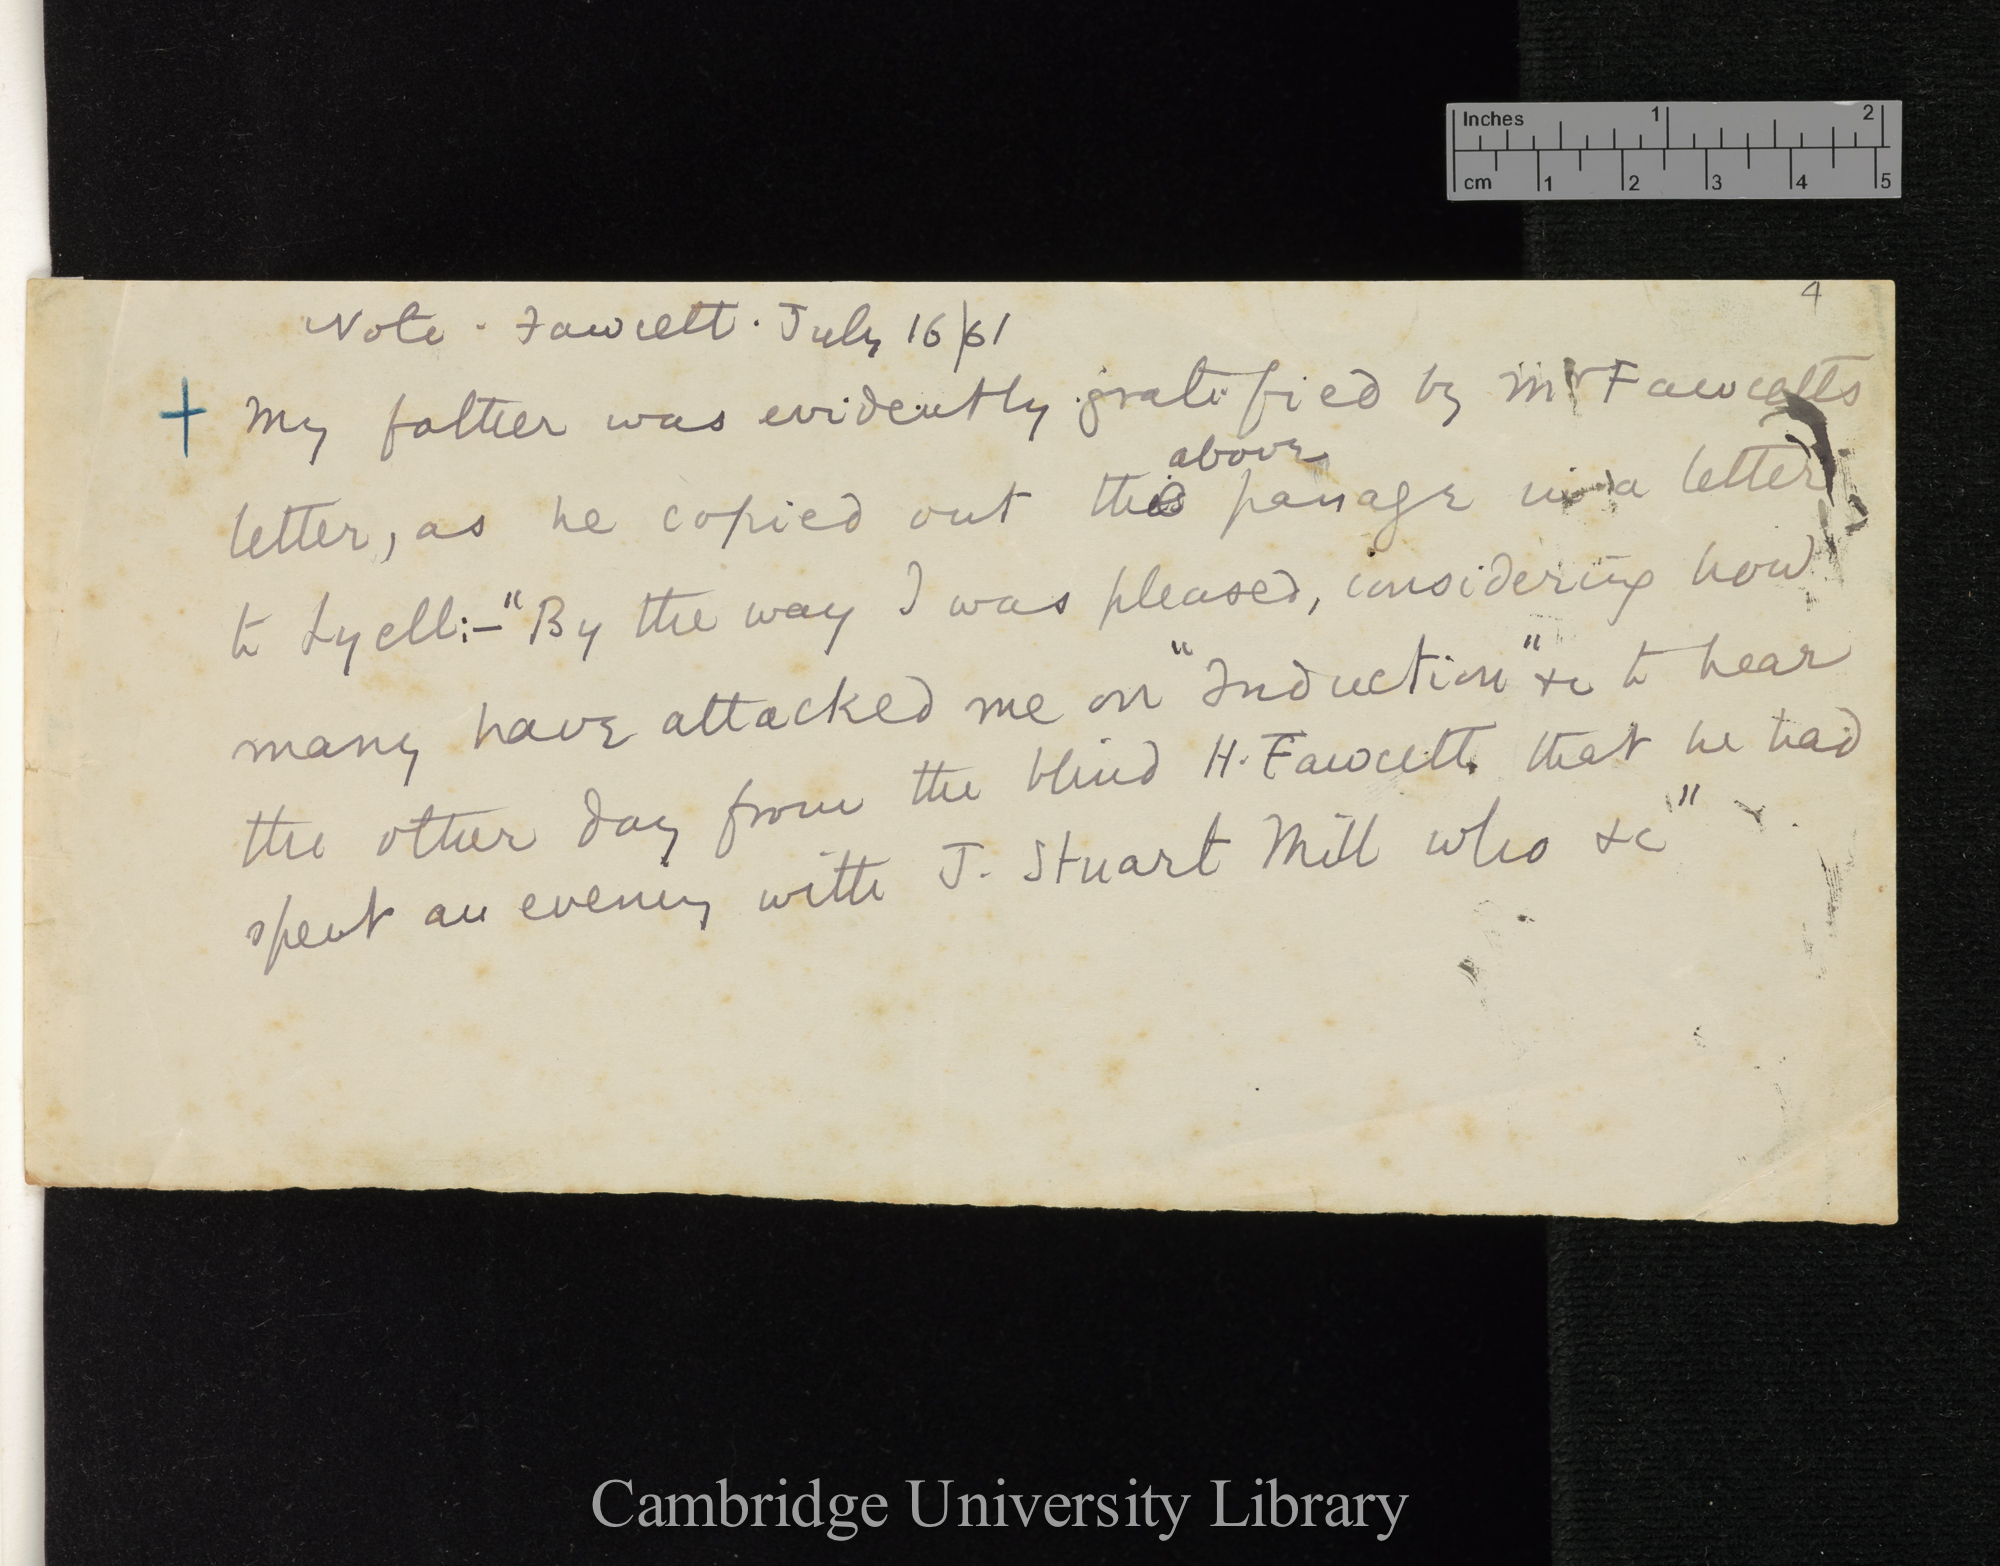 Inches 1 2
cm 1 2 3 4 5
4
Note - Fawcett. July 16/61
+ My father was evidently gratified by Mr Fawcetts
above
letter, as he copied out the passage in a letter
to Lyell:- "By the way I was pleased, considering how
many have attacked me on "Induction" &c to hear
the other day from the blind H. Fawcett that he had
spent an evening with J. Stuart Mill who &c"
Cambridge University Library